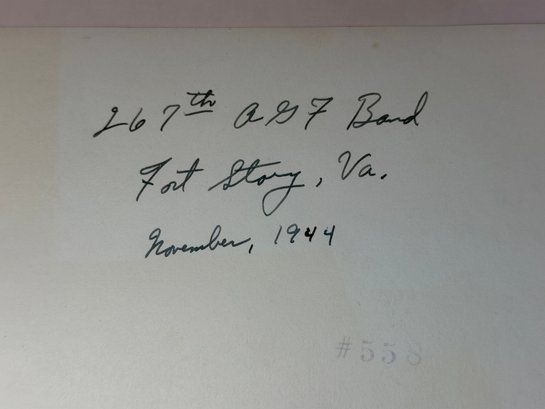 267th AGF Band
Fort Story, Va.
November, 1944
#558